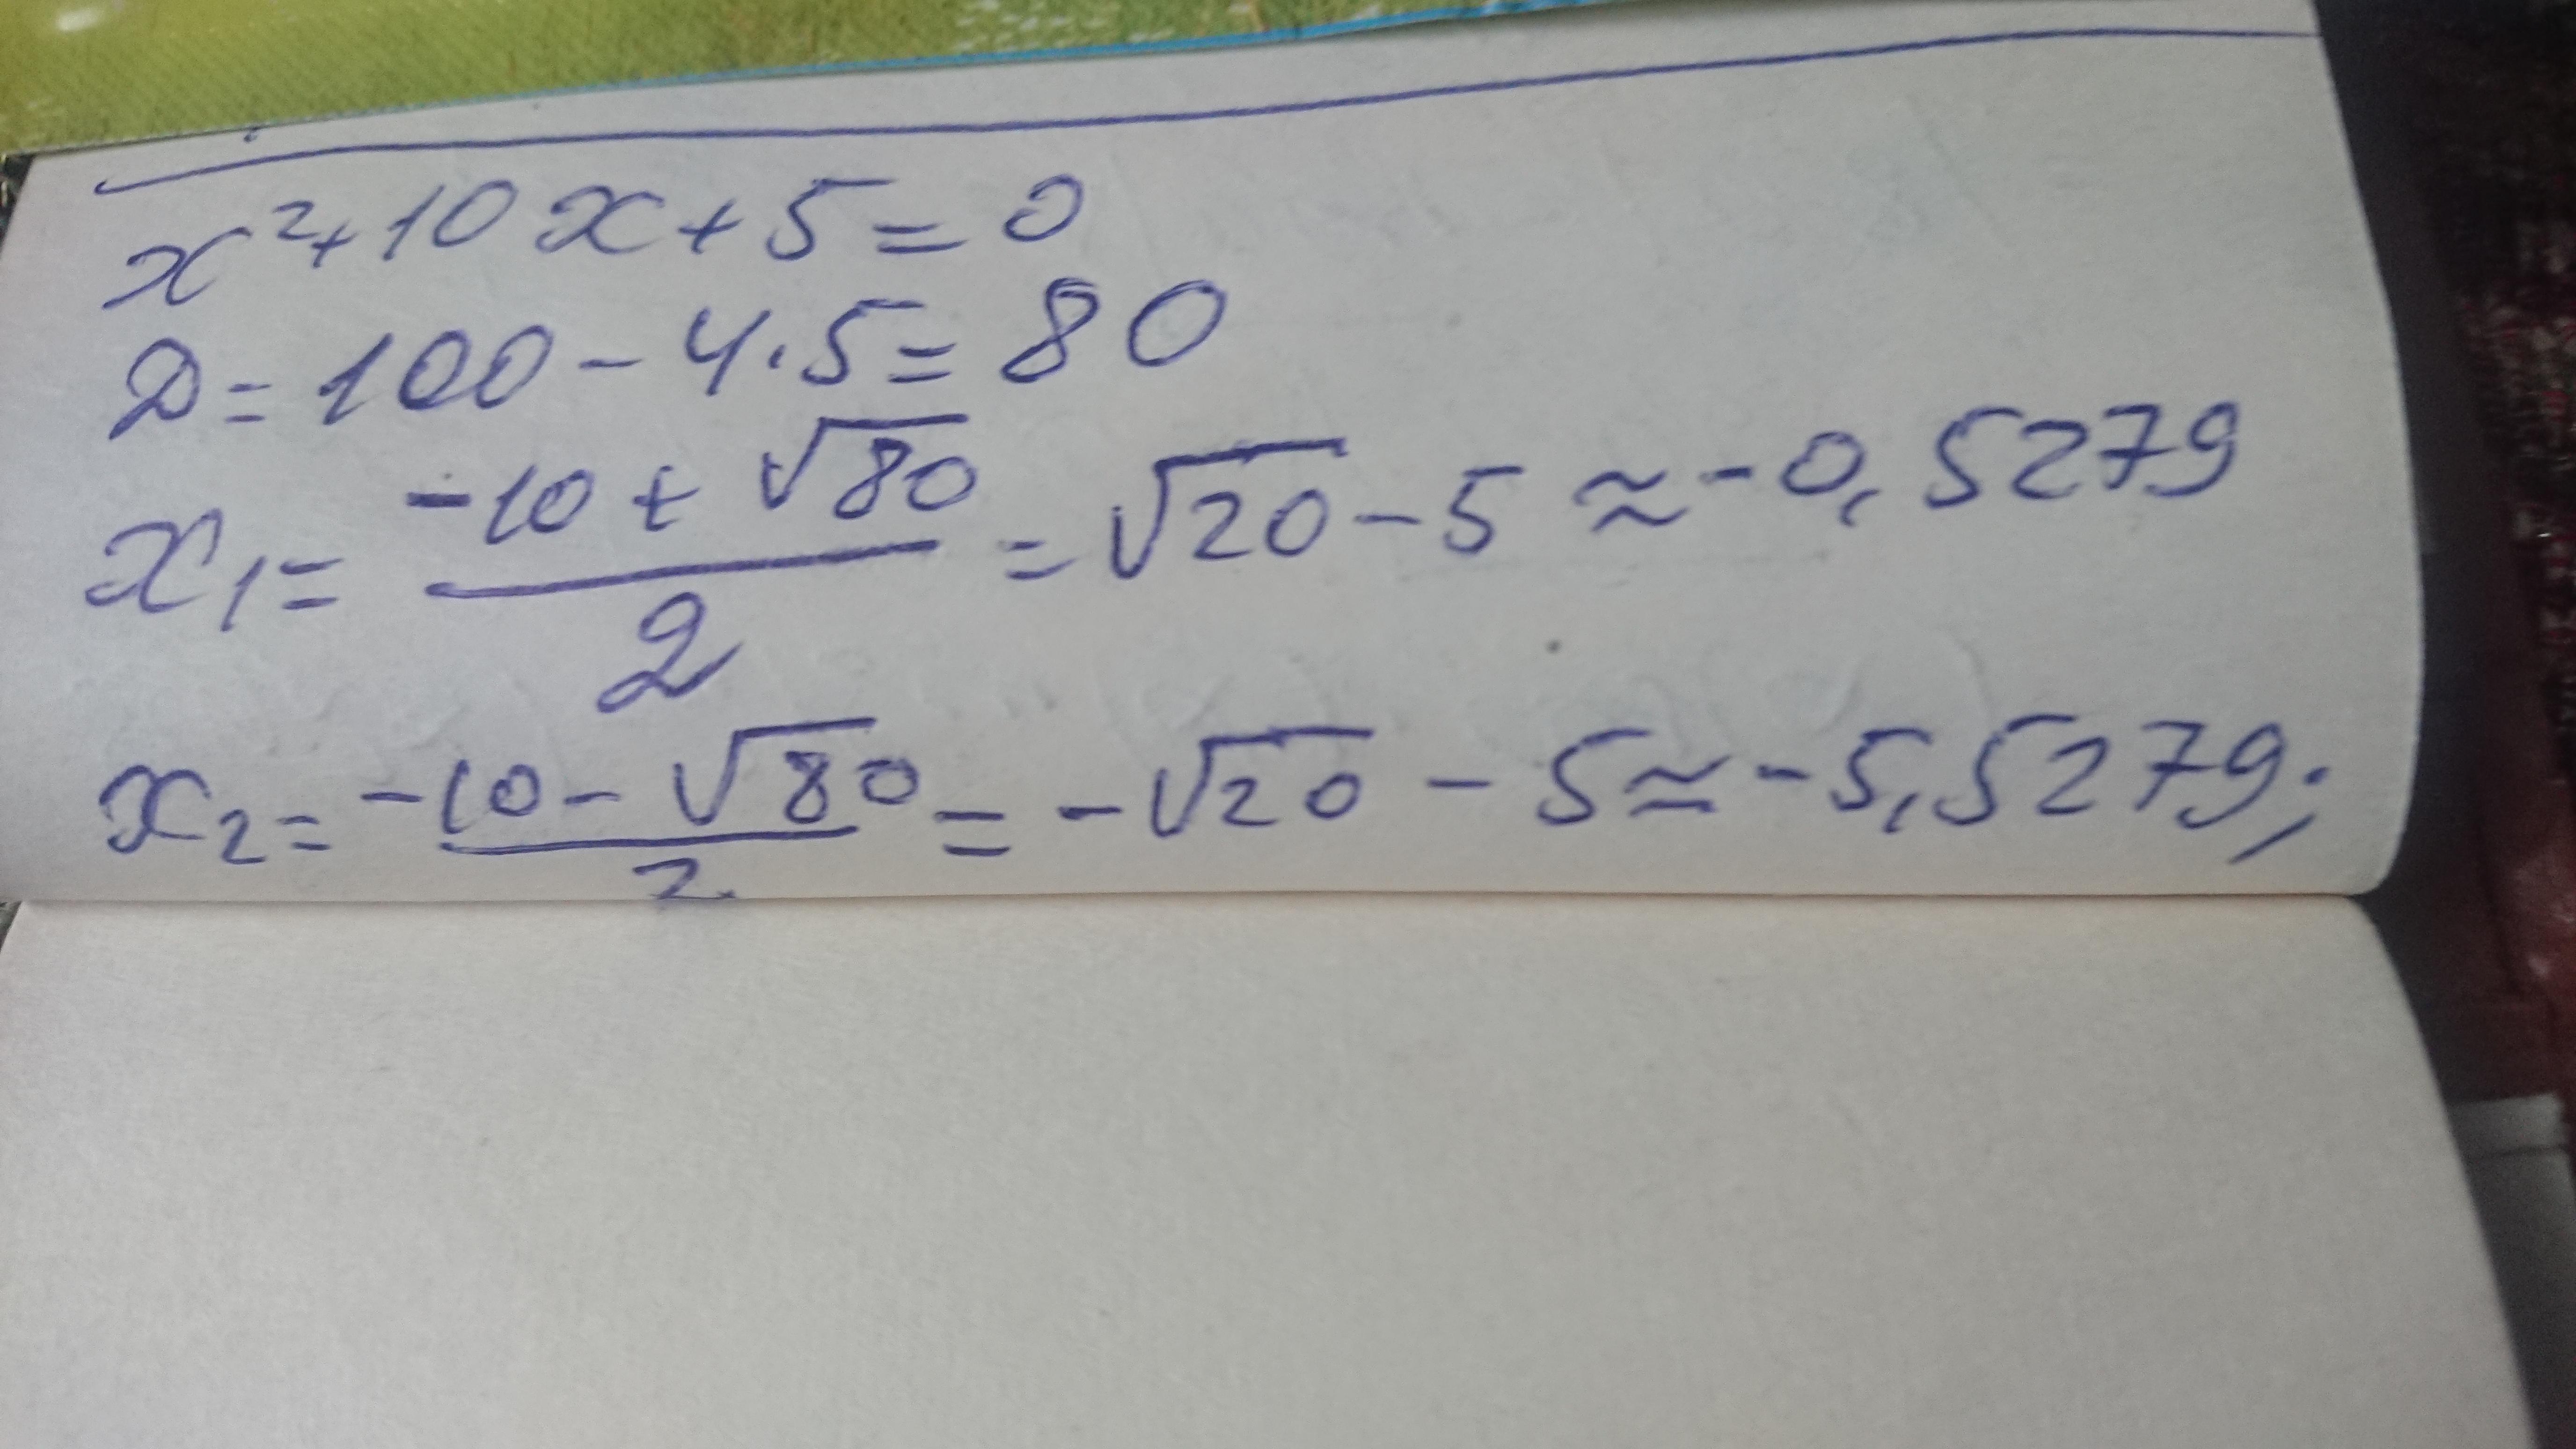 x²+10x+5=0
D=100-4·5=80
x₁=(-10+√80)/2=√20-5≈-0,5279
x₂=(-10-√80)/2=-√20-5≈-5,5279;